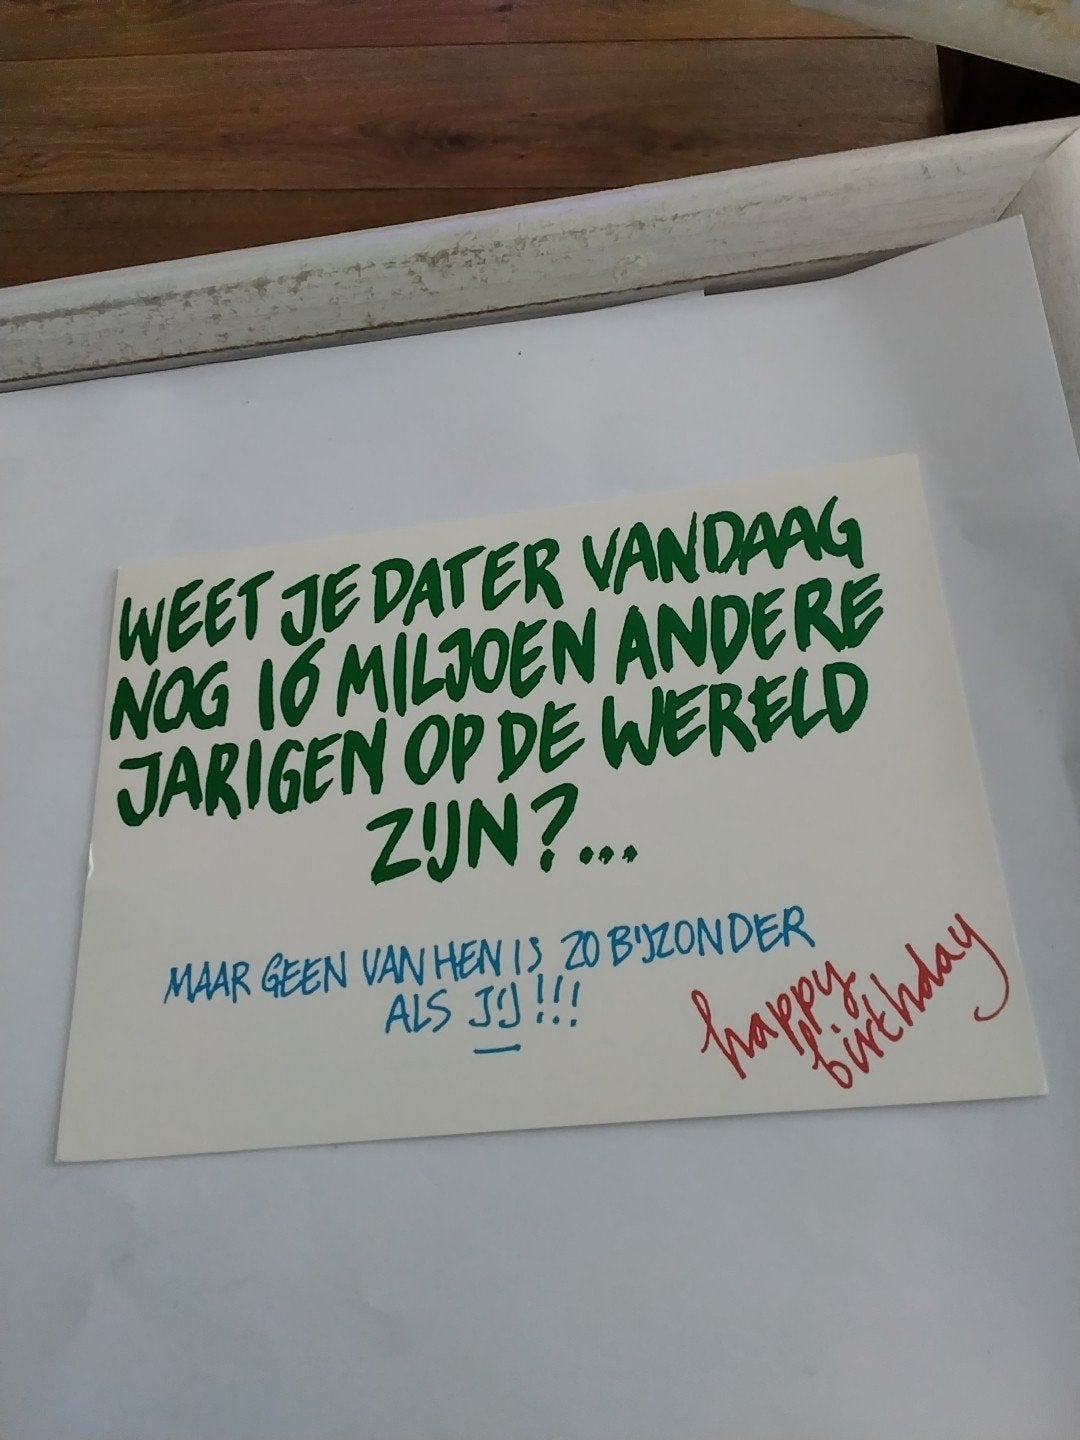 WEET JE DAT ER VANDAAG
NOG 16 MILJOEN ANDERE
JARIGEN OP DE WERELD
ZIJN?...
MAAR GEEN VAN HEN IS ZO BIJZONDER
ALS JIJ!!!
happy
birthday